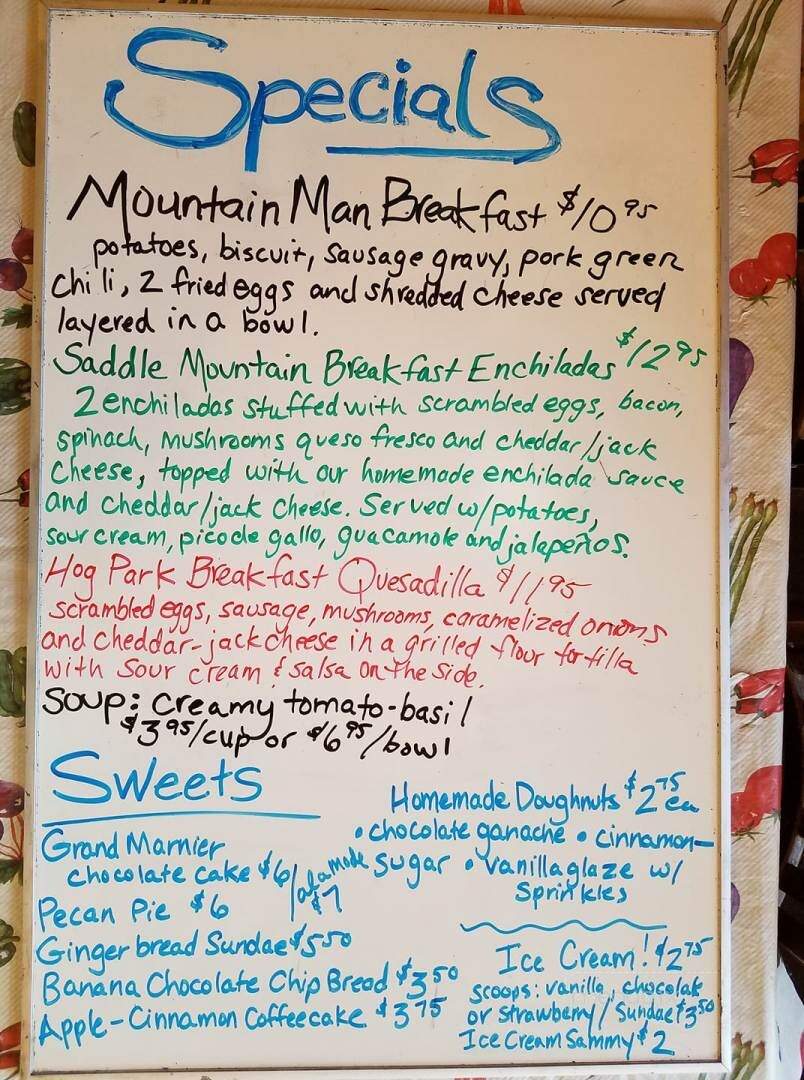 Specials
Mountain Man Breakfast $10.95
potatoes, biscuit, sausage gravy, pork green
chili, 2 fried eggs and shredded cheese served
layered in a bowl.
Saddle Mountain Breakfast Enchiladas $12.95
2 enchiladas stuffed with scrambled eggs, bacon,
spinach, mushrooms queso fresco and cheddar/jack
cheese, topped with our homemade enchilada sauce
and cheddar/jack cheese. Served w/potatoes,
sour cream, pico de gallo, guacamole and jalapeños.
Hog Park Breakfast Quesadilla $11.95
scrambled eggs, sausage, mushrooms, caramelized onions
and cheddar-jack cheese in a grilled flour tortilla
with sour cream & salsa on the side.
Soup: creamy tomato-basil
$3.95/cup or $6.95/bowl
Sweets
Grand Marnier
chocolate cake $6/ala mode $7
Pecan Pie $6
Gingerbread Sundae $5.50
Banana Chocolate Chip Bread $3.50
Apple-Cinnamon Coffeecake $3.75
Homemade Doughnuts $2.75 ea
• chocolate ganache • cinnamon-
sugar • vanilla glaze w/
sprinkles
Ice Cream! $2.75
scoops: vanilla, chocolate
or strawberry/Sundae $3.50
Ice Cream Sammy $2